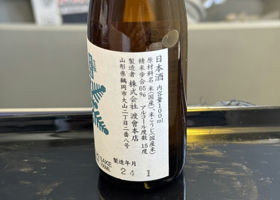 日本酒 内容量100ml
原材料名 米(国産)、米こうじ(国産米)
精米歩合65% アルコール度数15度
製造者 株式会社 渡會本店
山形県鶴岡市大山二丁目二番八号
製造年月
24 1
SAKE